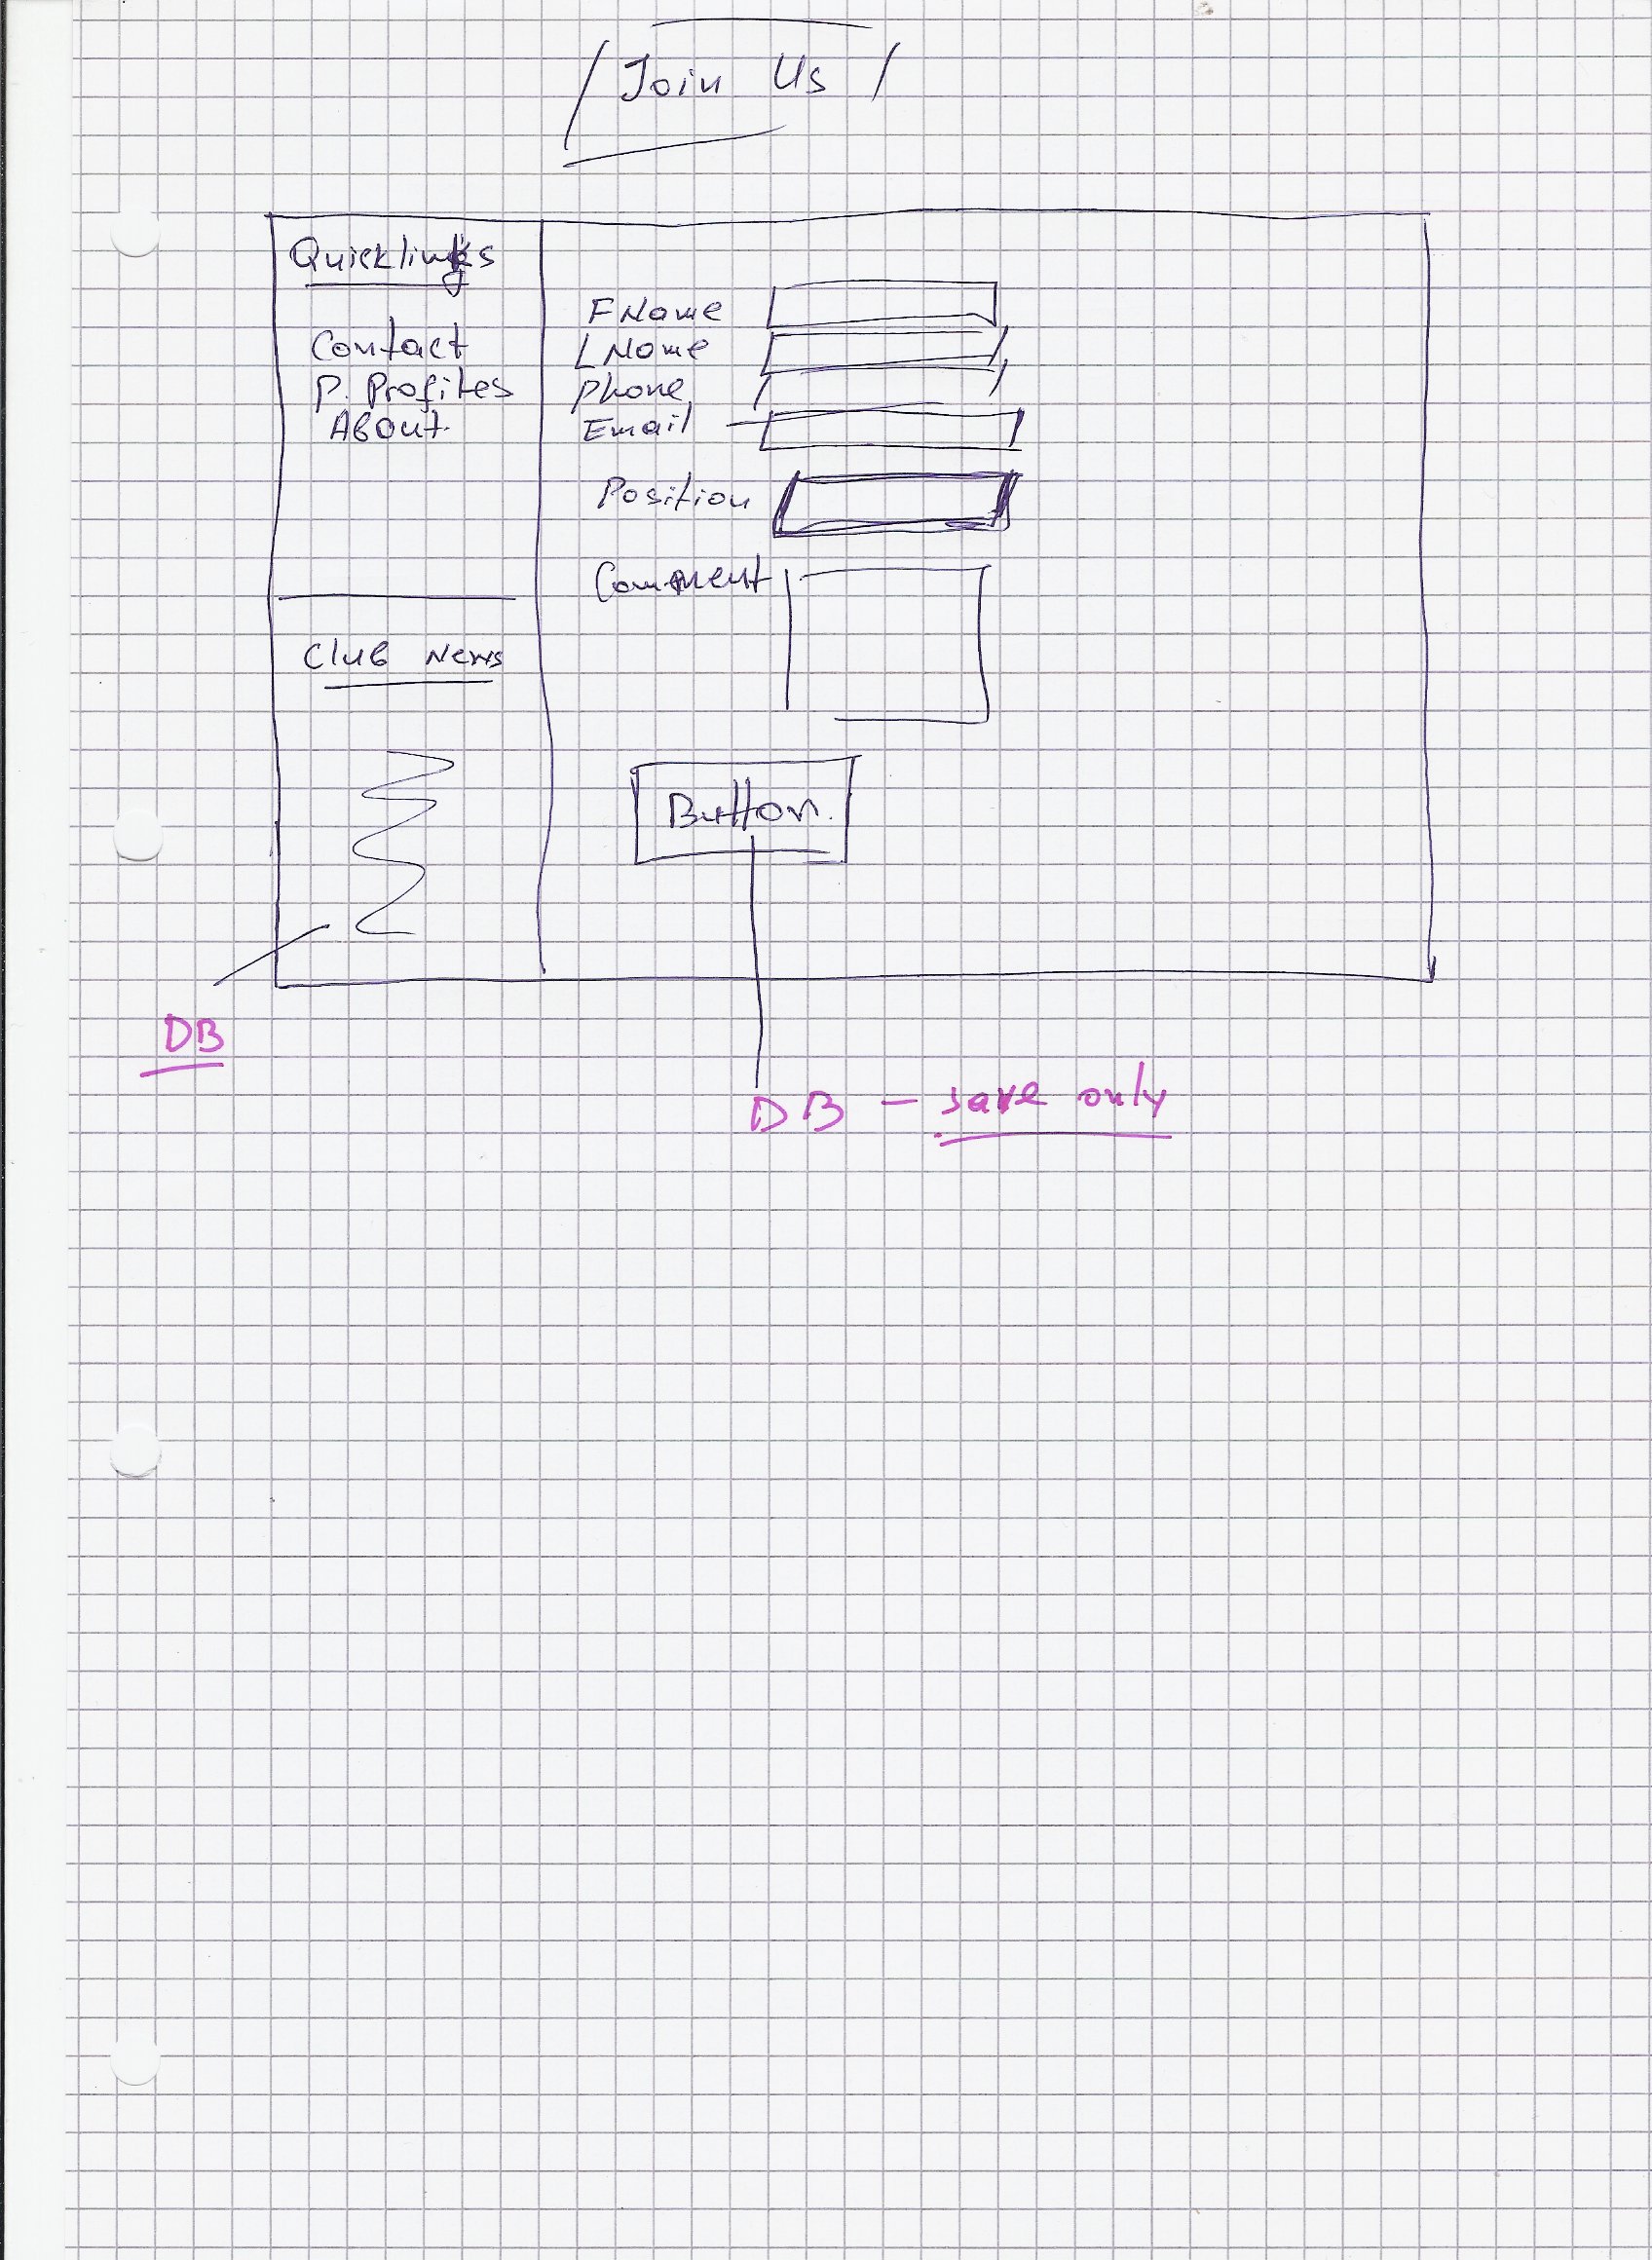 Join Us
Quicklinks
Contact
P. Profiles
About.
Club News
FName
LName
Phone
Email
Position
Comment
Button.
DB
DB - save only